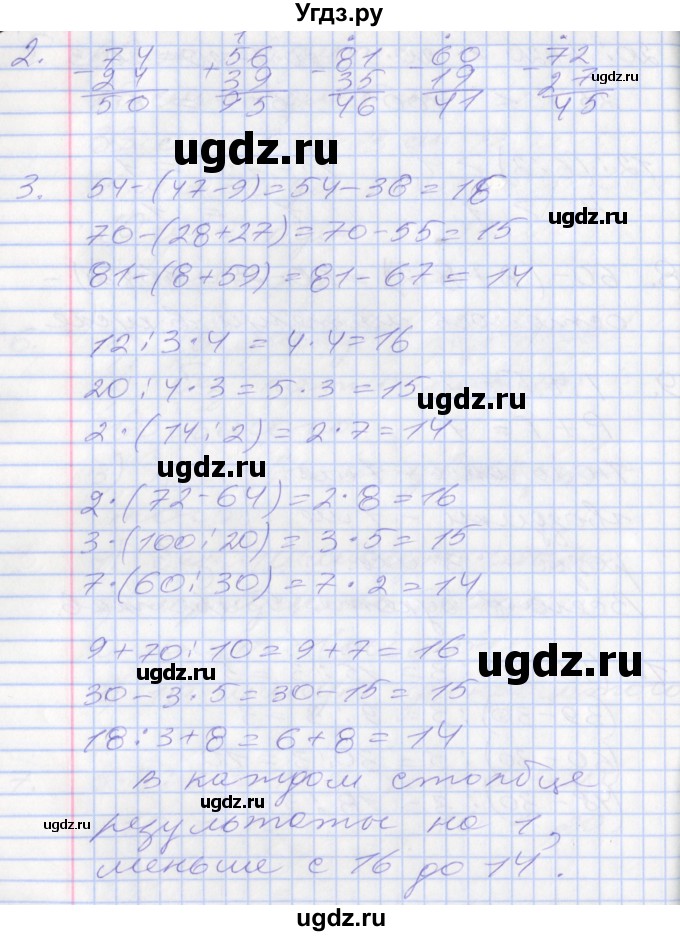 Угдз.ру
2. 74 56 81 60 72
- 24 + 39 - 35 - 19 - 27
50 95 46 41 45
ugdz.ru
ugdz.ru
3. 54-(47-9)=54-38=16
ugdz.ru
70-(28+27)=70-55=15
81-(8+59)=81-67=14
12:3·4=4·4=16
20:4·3=5·3=15
ugdz.ru
2·(14:2)=2·7=14
ugdz.ru
2·(72-64)=2·8=16
3·(100:20)=3·5=15
7·(60:30)=7·2=14
9+70:10=9+7=16
ugdz.ru
ugdz.ru
30-3·5=30-15=15
18:3+8=6+8=14
в каждом столбце
ugdz.ru
ugdz.ru
результаты на 1
ugdz.ru
меньше с 16 до 14.
ugdz.ru